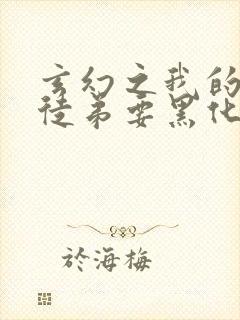 玄幻之我的
徒弟要黑化
於海梅